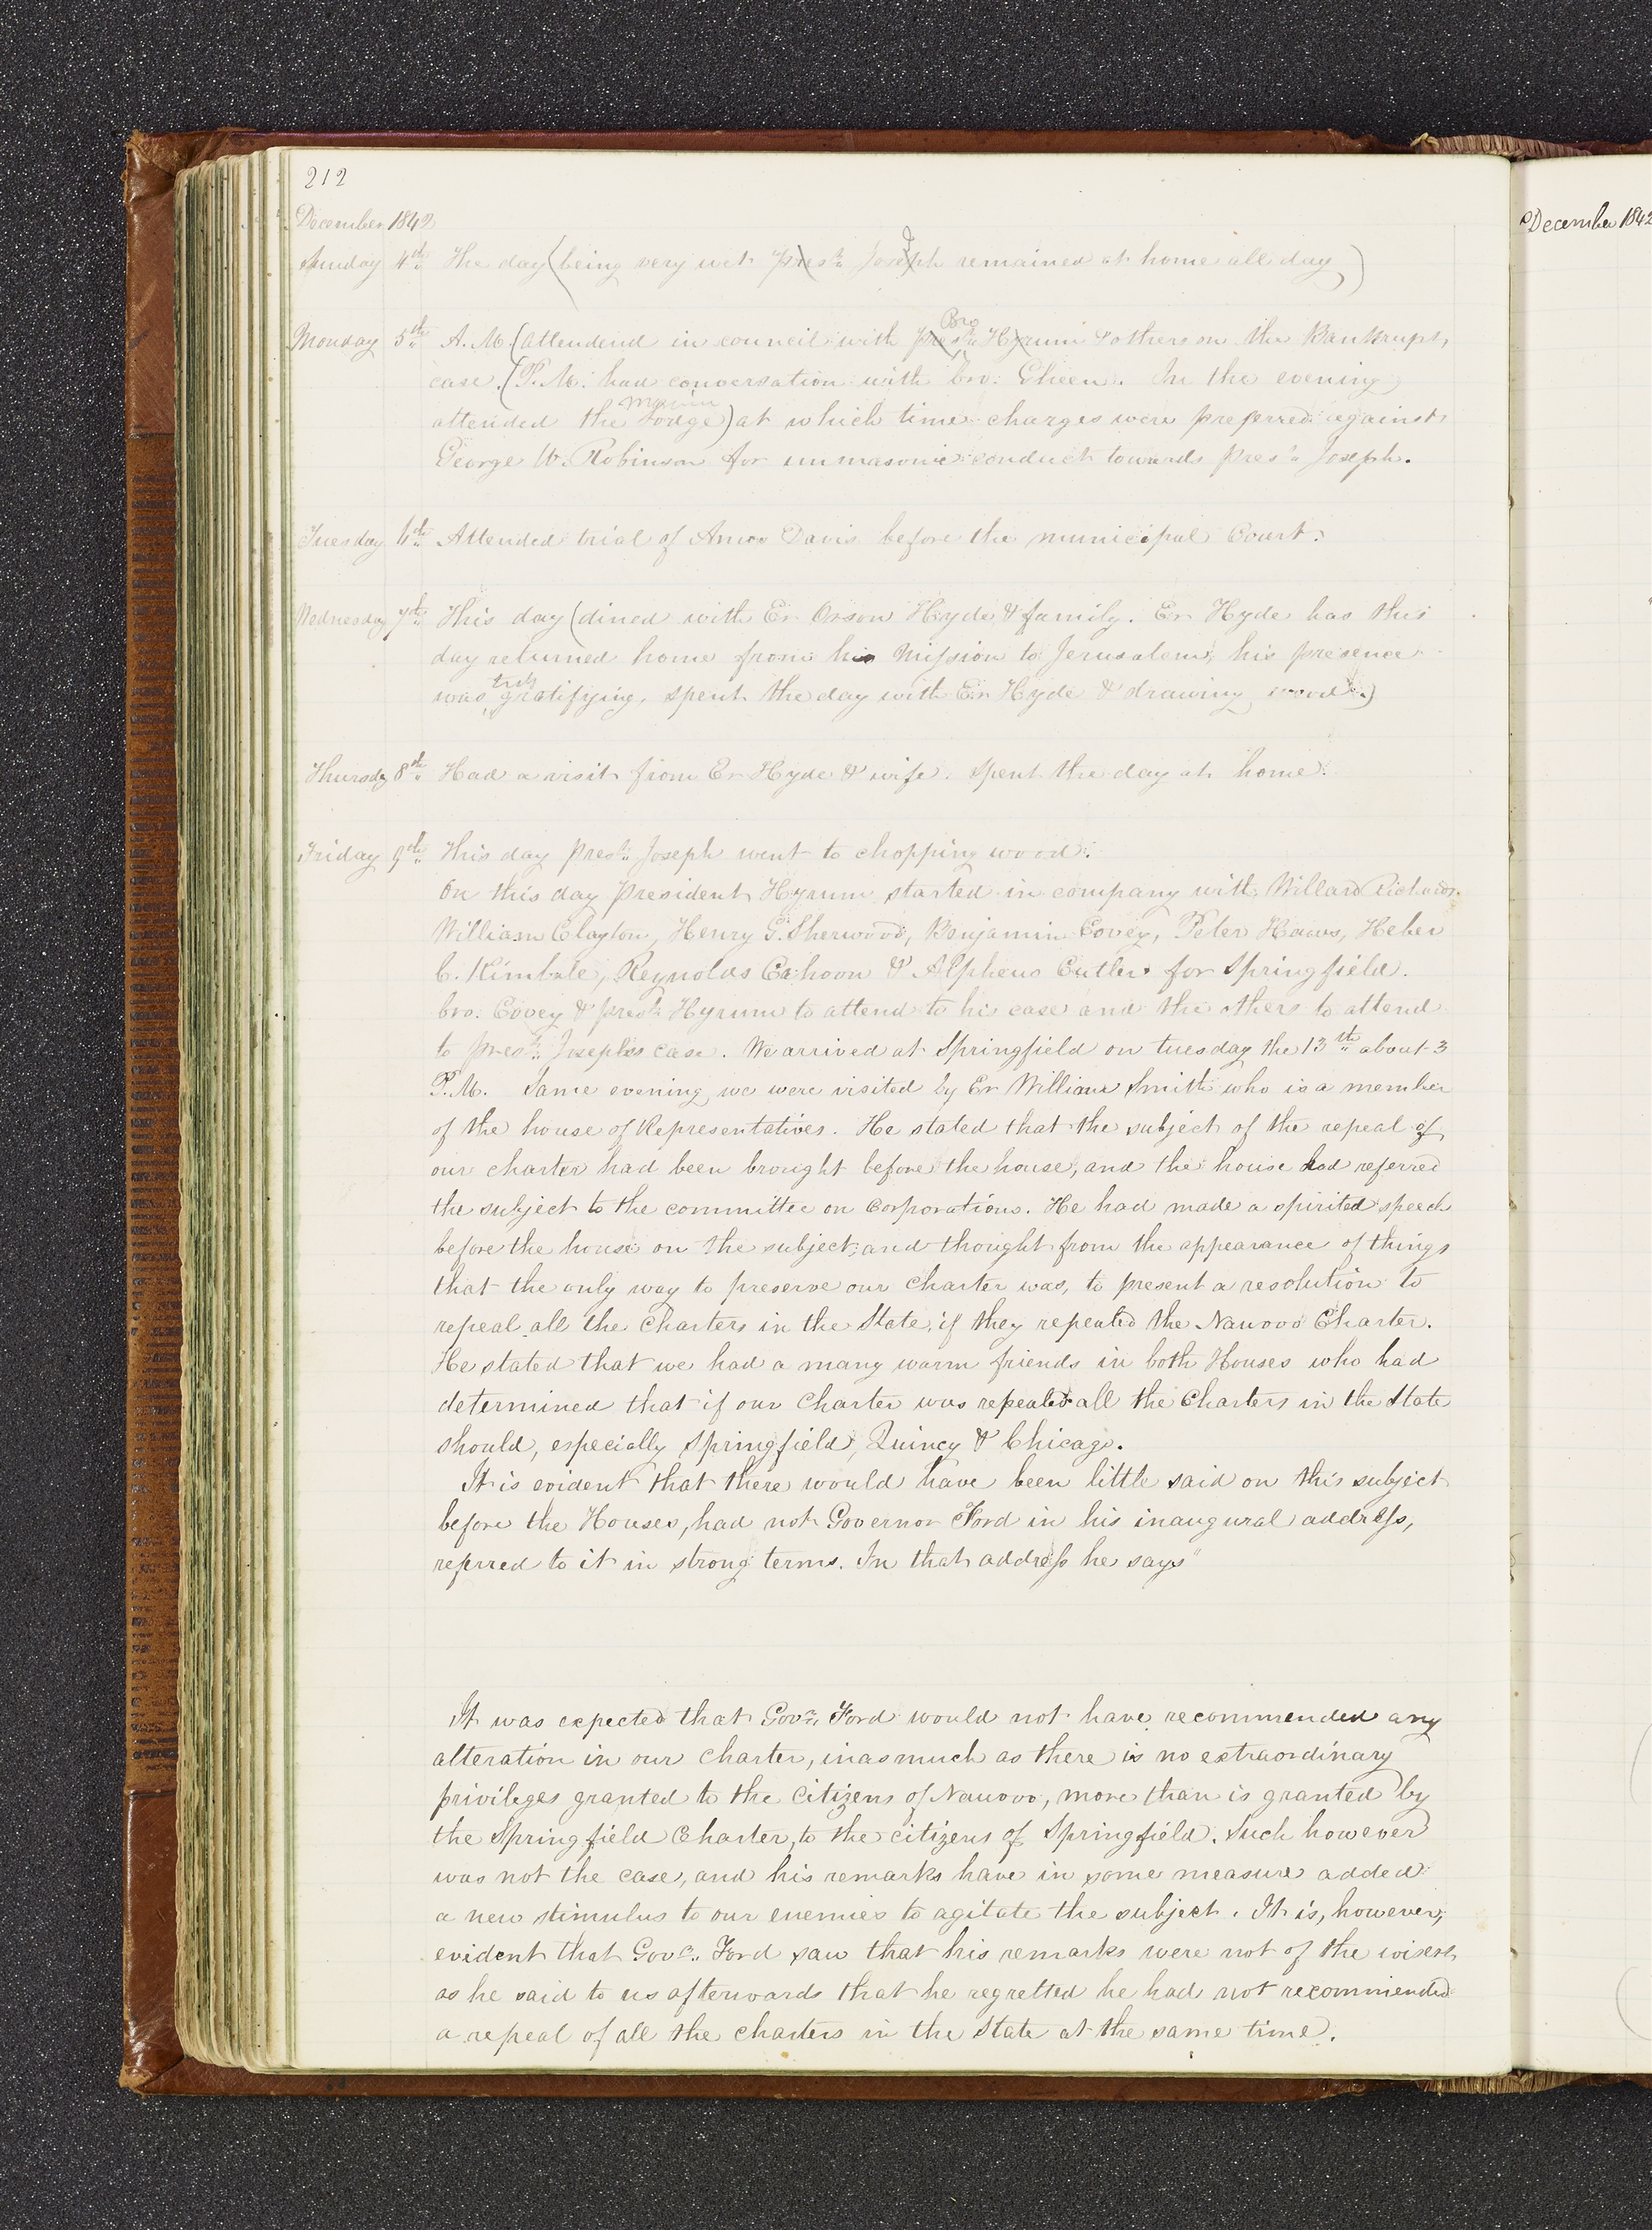 212
December 1842
Sunday 4th The day (being very wet Prest. Joseph remained at home all day)
I
Monday 5th A.M. (attendend in council with Prest. Hyrum & others on the Bankrupt
Bro
case. (P.M. had conversation with bro. Gheen. In the evening
attended the Lodge) at which time charges were preferred against
George W. Robinson for unmasonic conduct towards Prest. Joseph.
Tuesday 6th Attended trial of Amos Davis before the municipal Court.
Wednesday 7th This day (dined with Er Orson Hyde & family. Er Hyde has this
day returned home from his Mission to Jerusalem, his presence
was truly gratifying, spent the day with Er Hyde & drawing wood.)
Thursdy 8th Had a visit from Er Hyde & wife. spent the day at home.
Friday 9th This day Prest. Joseph went to chopping wood.
On this day President Hyrum started in company with Willard Richards
William Clayton, Henry G. Sherwood, Benjamin Covey, Peter Haws, Heber
C. Kimball, Reynolds Cahoon & Alpheus Cutler for Springfield.
bro. Covey & prest. Hyrum to attend to his case and the others to attend
to prest. Josephs case. We arrived at Springfield on tuesday the 13th about 3
P.M. Same evening we were visited by Er William Smith who is a member
of the house of Representatives. He stated that the subject of the repeal of
our charter had been brought before the house, and the house had referred
the subject to the committee on Corporations. He had made a spirited speech
before the house on the subject, and thought from the appearance of things
that the only way to preserve our charter was, to present a resolution to
repeal all the Charters in the State, if they repealed the Nauvoo Charter.
He stated that we had a many warm friends in both Houses who had
determined that if our Charter was repealed all the Charters in the State
should, especially Springfield, Quincy & Chicago.
It is evident that there would have been little said on this subject
before the Houses, had not Governor Ford in his inaugural address,
referred to it in strong terms. In that address he says "
It was expected that Govr. Ford would not have recommended any
alteration in our charter, inasmuch as there is no extraordinary
privileges granted to the Citizens of Nauvoo, more than is granted by
the Springfield Charter, to the citizens of Springfield. Such however
was not the case, and his remarks have in some measure added
a new stimulus to our enemies to agitate the subject. It is, however,
evident that Govr. Ford saw that his remarks were not of the wisest,
as he said to us afterwards that he regretted he had not recommended
a repeal of all the charters in the State at the same time.
December 1842